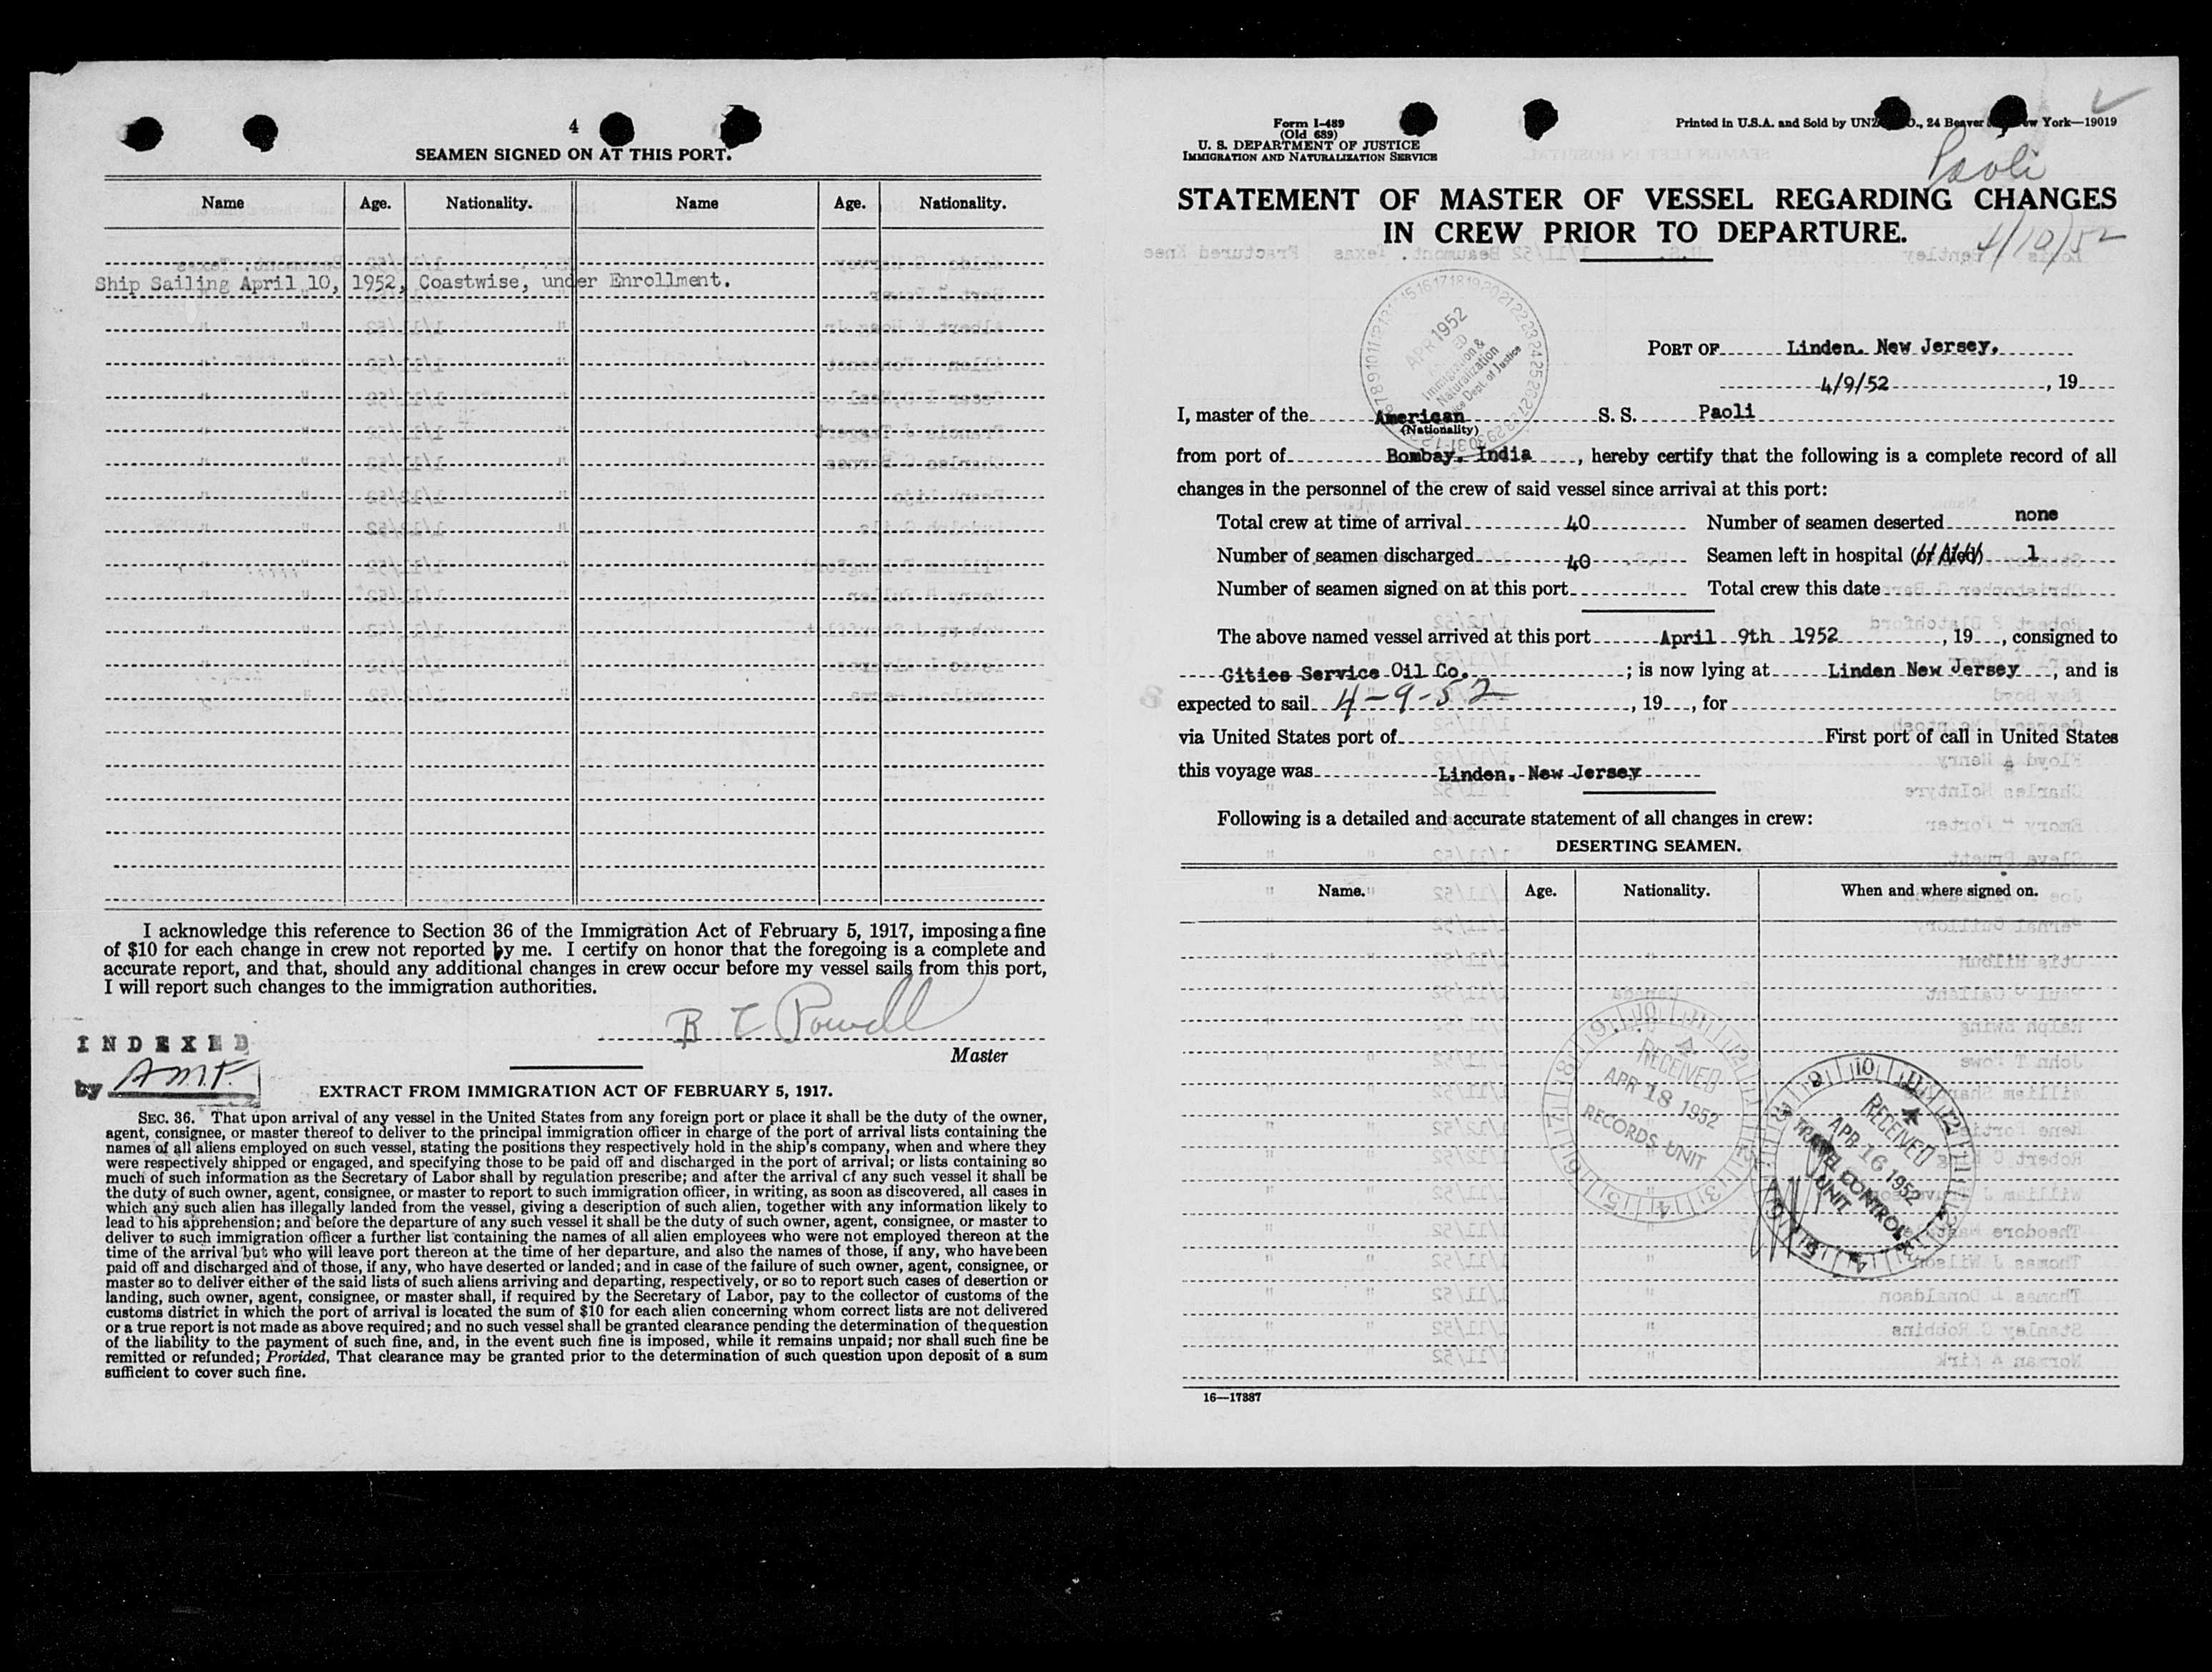 4
SEAMEN SIGNED ON AT THIS PORT.
Name Age. Nationality. Name Age. Nationality.
Ship Sailing April 10, 1952, Coastwise, under Enrollment.
I acknowledge this reference to Section 36 of the Immigration Act of February 5, 1917, imposing a fine
of $10 for each change in crew not reported by me. I certify on honor that the foregoing is a complete and
accurate report, and that, should any additional changes in crew occur before my vessel sails from this port,
I will report such changes to the immigration authorities.
R C Powell
Master
INDEXED
by A.M.F.
EXTRACT FROM IMMIGRATION ACT OF FEBRUARY 5, 1917.
SEC. 36. That upon arrival of any vessel in the United States from any foreign port or place it shall be the duty of the owner,
agent, consignee, or master thereof to deliver to the principal immigration officer in charge of the port of arrival lists containing the
names of all aliens employed on such vessel, stating the positions they respectively hold in the ship's company, when and where they
were respectively shipped or engaged, and specifying those to be paid off and discharged in the port of arrival; or lists containing so
much of such information as the Secretary of Labor shall by regulation prescribe; and after the arrival of any such vessel it shall be
the duty of such owner, agent, consignee, or master to report to such immigration officer, in writing, as soon as discovered, all cases in
which any such alien has illegally landed from the vessel, giving a description of such alien, together with any information likely to
lead to his apprehension; and before the departure of any such vessel it shall be the duty of such owner, agent, consignee, or master to
deliver to such immigration officer a further list containing the names of all alien employees who were not employed thereon at the
time of the arrival but who will leave port thereon at the time of her departure, and also the names of those, if any, who have been
paid off and discharged and of those, if any, who have deserted or landed; and in case of the failure of such owner, agent, consignee, or
master so to deliver either of the said lists of such aliens arriving and departing, respectively, or so to report such cases of desertion or
landing, such owner, agent, consignee, or master shall, if required by the Secretary of Labor, pay to the collector of customs of the
customs district in which the port of arrival is located the sum of $10 for each alien concerning whom correct lists are not delivered
or a true report is not made as above required; and no such vessel shall be granted clearance pending the determination of the question
of the liability to the payment of such fine, and, in the event such fine is imposed, while it remains unpaid; nor shall such fine be
remitted or refunded; Provided, That clearance may be granted prior to the determination of such question upon deposit of a sum
sufficient to cover such fine.
Form I-489
(Old 689)
U. S. DEPARTMENT OF JUSTICE
IMMIGRATION AND NATURALIZATION SERVICE
Printed in U.S.A. and Sold by 24 Beaver York—19019
Paoli
STATEMENT OF MASTER OF VESSEL REGARDING CHANGES
IN CREW PRIOR TO DEPARTURE.
4/10/52
APR 1952
Immigration &
Naturalization
Dept. of Justice
PORT OF Linden. New Jersey.
4/9/52, 19
I, master of the American S. S. Paoli
(Nationality)
from port of Bombay, India, hereby certify that the following is a complete record of all
changes in the personnel of the crew of said vessel since arrival at this port:
Total crew at time of arrival 40 Number of seamen deserted none
Number of seamen discharged 40 Seamen left in hospital (or died) 1
Number of seamen signed on at this port Total crew this date
The above named vessel arrived at this port April 9th 1952, 19, consigned to
Cities Service Oil Co.; is now lying at Linden New Jersey, and is
expected to sail 4-9-52, 19, for
via United States port of First port of call in United States
this voyage was Linden. New Jersey
Following is a detailed and accurate statement of all changes in crew:
DESERTING SEAMEN.
Name. Age. Nationality. When and where signed on.
RECEIVED
APR 18 1952
RECORDS UNIT
RECEIVED
APR 16 1952
TRAVEL CONTROL
UNIT
16—17387